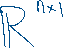 ℝ^{n×1}